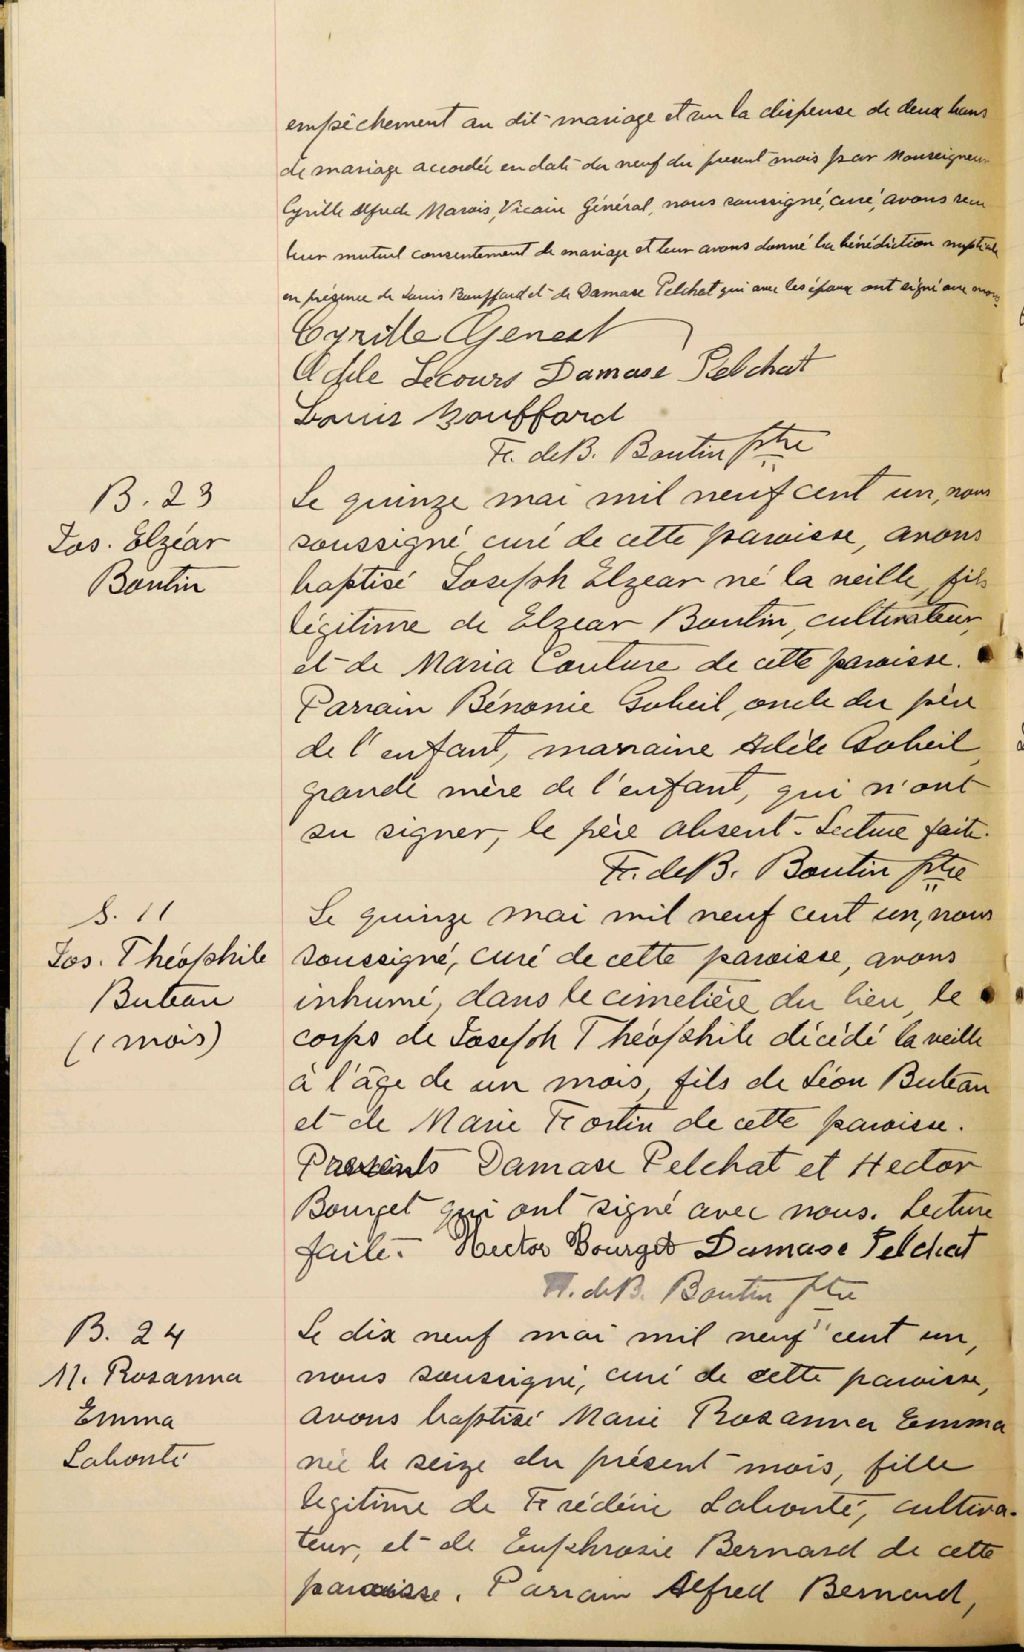 empêchement au dit mariage et vu la dispense de deux bans
de mariage accordée en date du neuf du present mois par Monseigneur
Cyrille Alfrede Marois, Vicaire Général, nous soussigné, curé, avons recu
leur mutuel consentement de mariage et leur avons donné la bénédiction nuptiale
en présence de Louis Bouffard et de Damase Pelchat qui avec les époux ont signé avec nous
Cyrille Genest
Adèle Lecours Damase Pelchat
Louis Bouffard
F. de B. Boutin ptre
B. 23
Jos. Elzéar
Boutin
Le quinze mai mil neuf cent un, nous
soussigné curé de cette paroisse, avons
baptisé Joseph Elzear né la veille, fils
légitime de Elzear Boutin, cultivateur,
et de Maria Couture de cette paroisse.
Parrain Bénonie Goheil, oncle du père
de l'enfant, marraine Adèle Goheil,
grande mère de l'enfant, qui n'ont
su signer, le père absent. Lecture faite.
F. de B. Boutin ptre
S. 11
Jos. Théophile
Buteau
(1 mois)
Le quinze mai mil neuf cent un, nous
soussigné, curé de cette paroisse, avons
inhumé, dans le cimetière du lieu, le
corps de Joseph Théophile décédé la veille
à l'âge de un mois, fils de Léon Buteau
et de Marie Fortin de cette paroisse.
Presents Damase Pelchat et Hector
Bourget qui ont signé avec nous. Lecture
faite. Hector Bourget Damase Pelchat
F. de B. Boutin ptre
B. 24
M. Rosanna
Emma
Labonté
Le dix neuf mai mil neuf cent un,
nous soussigné, curé de cette paroisse,
avons baptisé Marie Rosanna Emma
née le seize du présent mois, fille
legitime de Frédéric Labonté, cultiva-
teur, et de Euphrosie Bernard de cette
paroisse. Parrain Alfred Bernard,